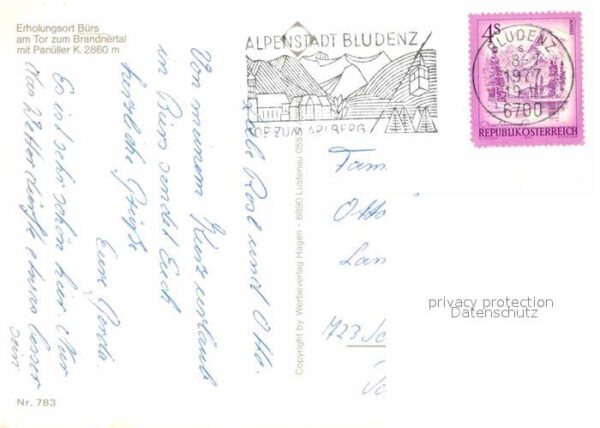 Erholungsort Bürs
am Tor zum Brandnertal
mit Panüller K. 2860 m
ALPENSTADT BLUDENZ
TOR ZUM ARLBERG
4S
REPUBLIK ÖSTERREICH
BLUDENZ
1977
6700
Liebe Rosl und Otto.
Von meinem Kurzurlaub
in Bürs sendet Euch
herzliche Grüße
Eure Gerda.
Es ist sehr schön hier. Nur
das Wetter dürfte etwas besser
sein.
Copyright by Werbeverlag Hagen - 6890 Lustenau 055
Fam
Otto
Lan
privacy protection
Datenschutz
Nr. 783